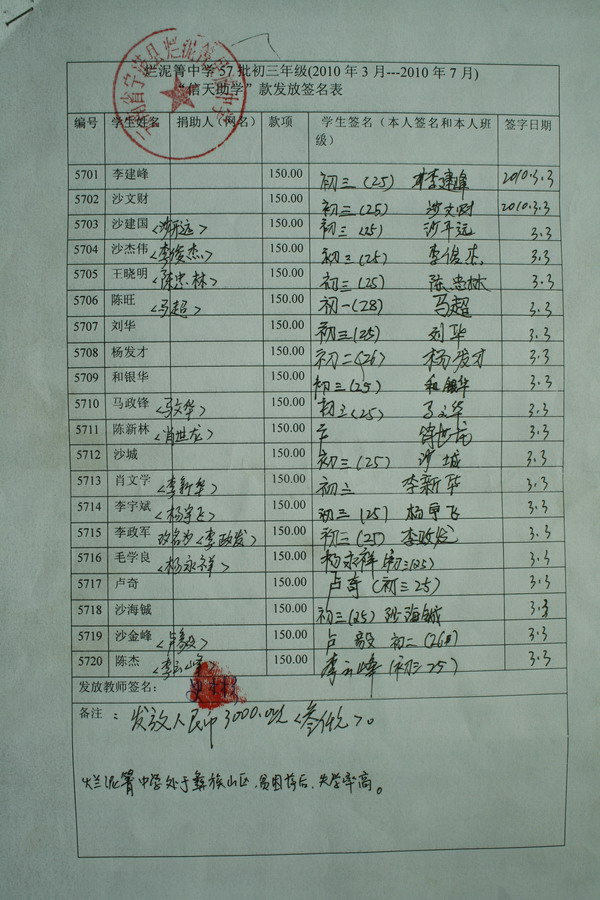 烂泥箐中学57批初三年级(2010年3月---2010年7月)
“信天助学”款发放签名表
编号 学生姓名 捐助人（网名） 款项 学生签名（本人签名和本人班级） 签字日期
5701 李建峰 150.00 初三（25） 李建峰 2010.3.3
5702 沙文财 150.00 初三（25） 沙文财 2010.3.3
5703 沙建国 150.00 初三（25） 3.3
5704 沙杰伟 <李俊杰> 150.00 初三（25） 李俊杰 3.3
5705 王晓明 <陈忠林> 150.00 初三（25） 陈忠林 3.3
5706 陈旺 <马超> 150.00 初一（28） 马超 3.3
5707 刘华 150.00 初三（25） 刘华 3.3
5708 杨发才 150.00 初二（26） 杨发才 3.3
5709 和银华 150.00 初三（25） 和银华 3.3
5710 马政锋 <马文华> 150.00 初三（25） 马文华 3.3
5711 陈新林 <肖世龙> 150.00 3.3
5712 沙城 150.00 初三（25） 沙城 3.3
5713 肖文学 <李新华> 150.00 初二 李新华 3.3
5714 李宇斌 <杨宇飞> 150.00 初三（25） 3.3
5715 李政军 改名为<李政发> 150.00 初三（25） 李政发 3.3
5716 毛学良 <杨永祥> 150.00 杨永祥（初三25） 3.3
5717 卢奇 150.00 卢奇（初三25） 3.3
5718 沙海铖 150.00 初三（25） 沙海铖 3.3
5719 沙金峰 <卢毅> 150.00 卢毅 初二 3.3
5720 陈杰 <李云峰> 150.00 李云峰（初三25） 3.3
发放教师签名：
备注：发放人民币3000.0元<叁仟元>。
烂泥箐中学处于彝族山区，贫困落后，失学率高。